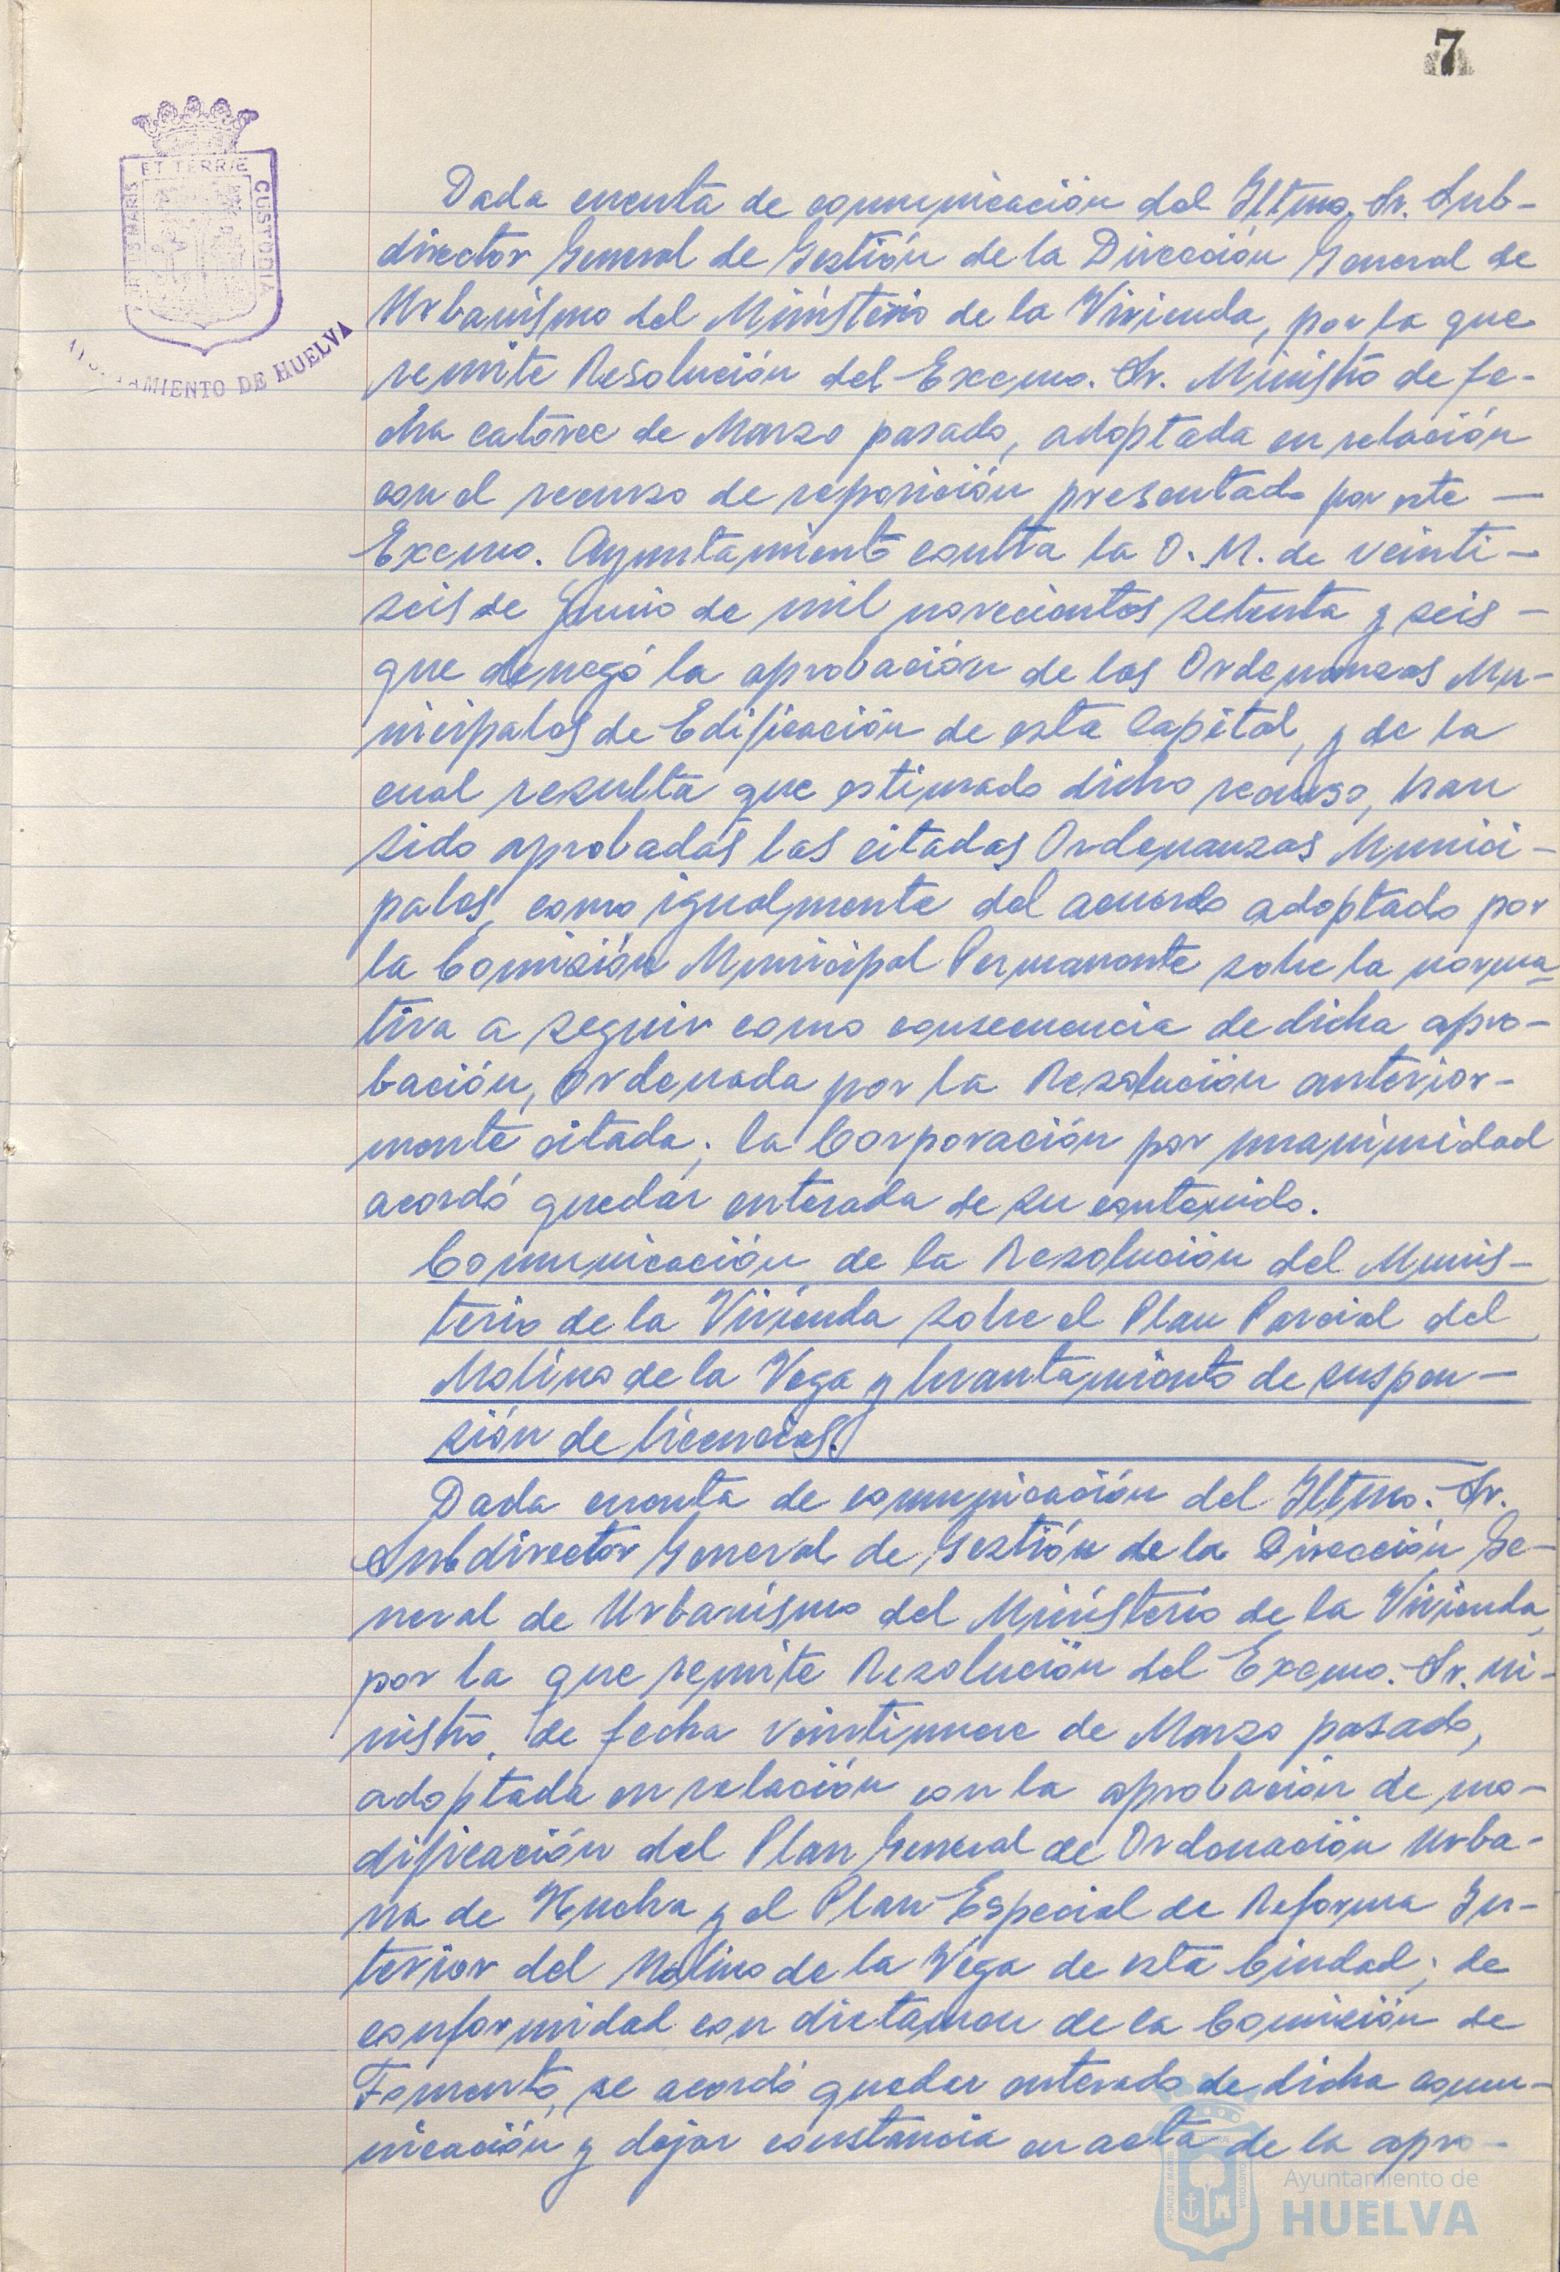 7
ET TERRÆ
CUSTODIA
PORTUS MARIS
AYUNTAMIENTO DE HUELVA
Dada cuenta de comunicación del Iltmo. Sr. Sub-
director General de Gestión de la Dirección General de
Urbanismo del Ministerio de la Vivienda, por la que
remite Resolución del Excmo. Sr. Ministro de fe-
cha catorce de Marzo pasado, adoptada en relación
con el recurso de reposición presentado por este —
Excmo. Ayuntamiento contra la O. M. de veinti-
seis de Junio de mil novecientos setenta y seis -
que denegó la aprobación de las Ordenanzas Mu-
nicipales de Edificación de esta Capital, y de la
cual resulta que estimado dicho recurso, han
sido aprobadas las citadas Ordenanzas Munici-
pales, como igualmente del acuerdo adoptado por
la Comisión Municipal Permanente sobre la norma-
tiva a seguir como consecuencia de dicha apro-
bación, ordenada por la Resolución anterior-
mente citada; la Corporación por unanimidad
acordó quedar enterada de su contenido.
Comunicación de la Resolución del Minis-
terio de la Vivienda sobre el Plan Parcial del
Molino de la Vega y levantamiento de suspen-
sión de licencias.
Dada cuenta de comunicación del Iltmo. Sr.
Subdirector General de Gestión de la Dirección Ge-
neral de Urbanismo del Ministerio de la Vivienda,
por la que remite Resolución del Excmo. Sr. Mi-
nistro, de fecha veintinueve de Marzo pasado,
adoptada en relación con la aprobación de mo-
dificación del Plan General de Ordenación Urba-
na de Huelva y el Plan Especial de Reforma In-
terior del Molino de la Vega de esta Ciudad; de
conformidad con dictamen de la Comisión de
Fomento, se acordó quedar enterado de dicha comu-
nicación y dejar constancia en acta de la apro-
PORTUS MARIS
CUSTODIA
Ayuntamiento de
HUELVA